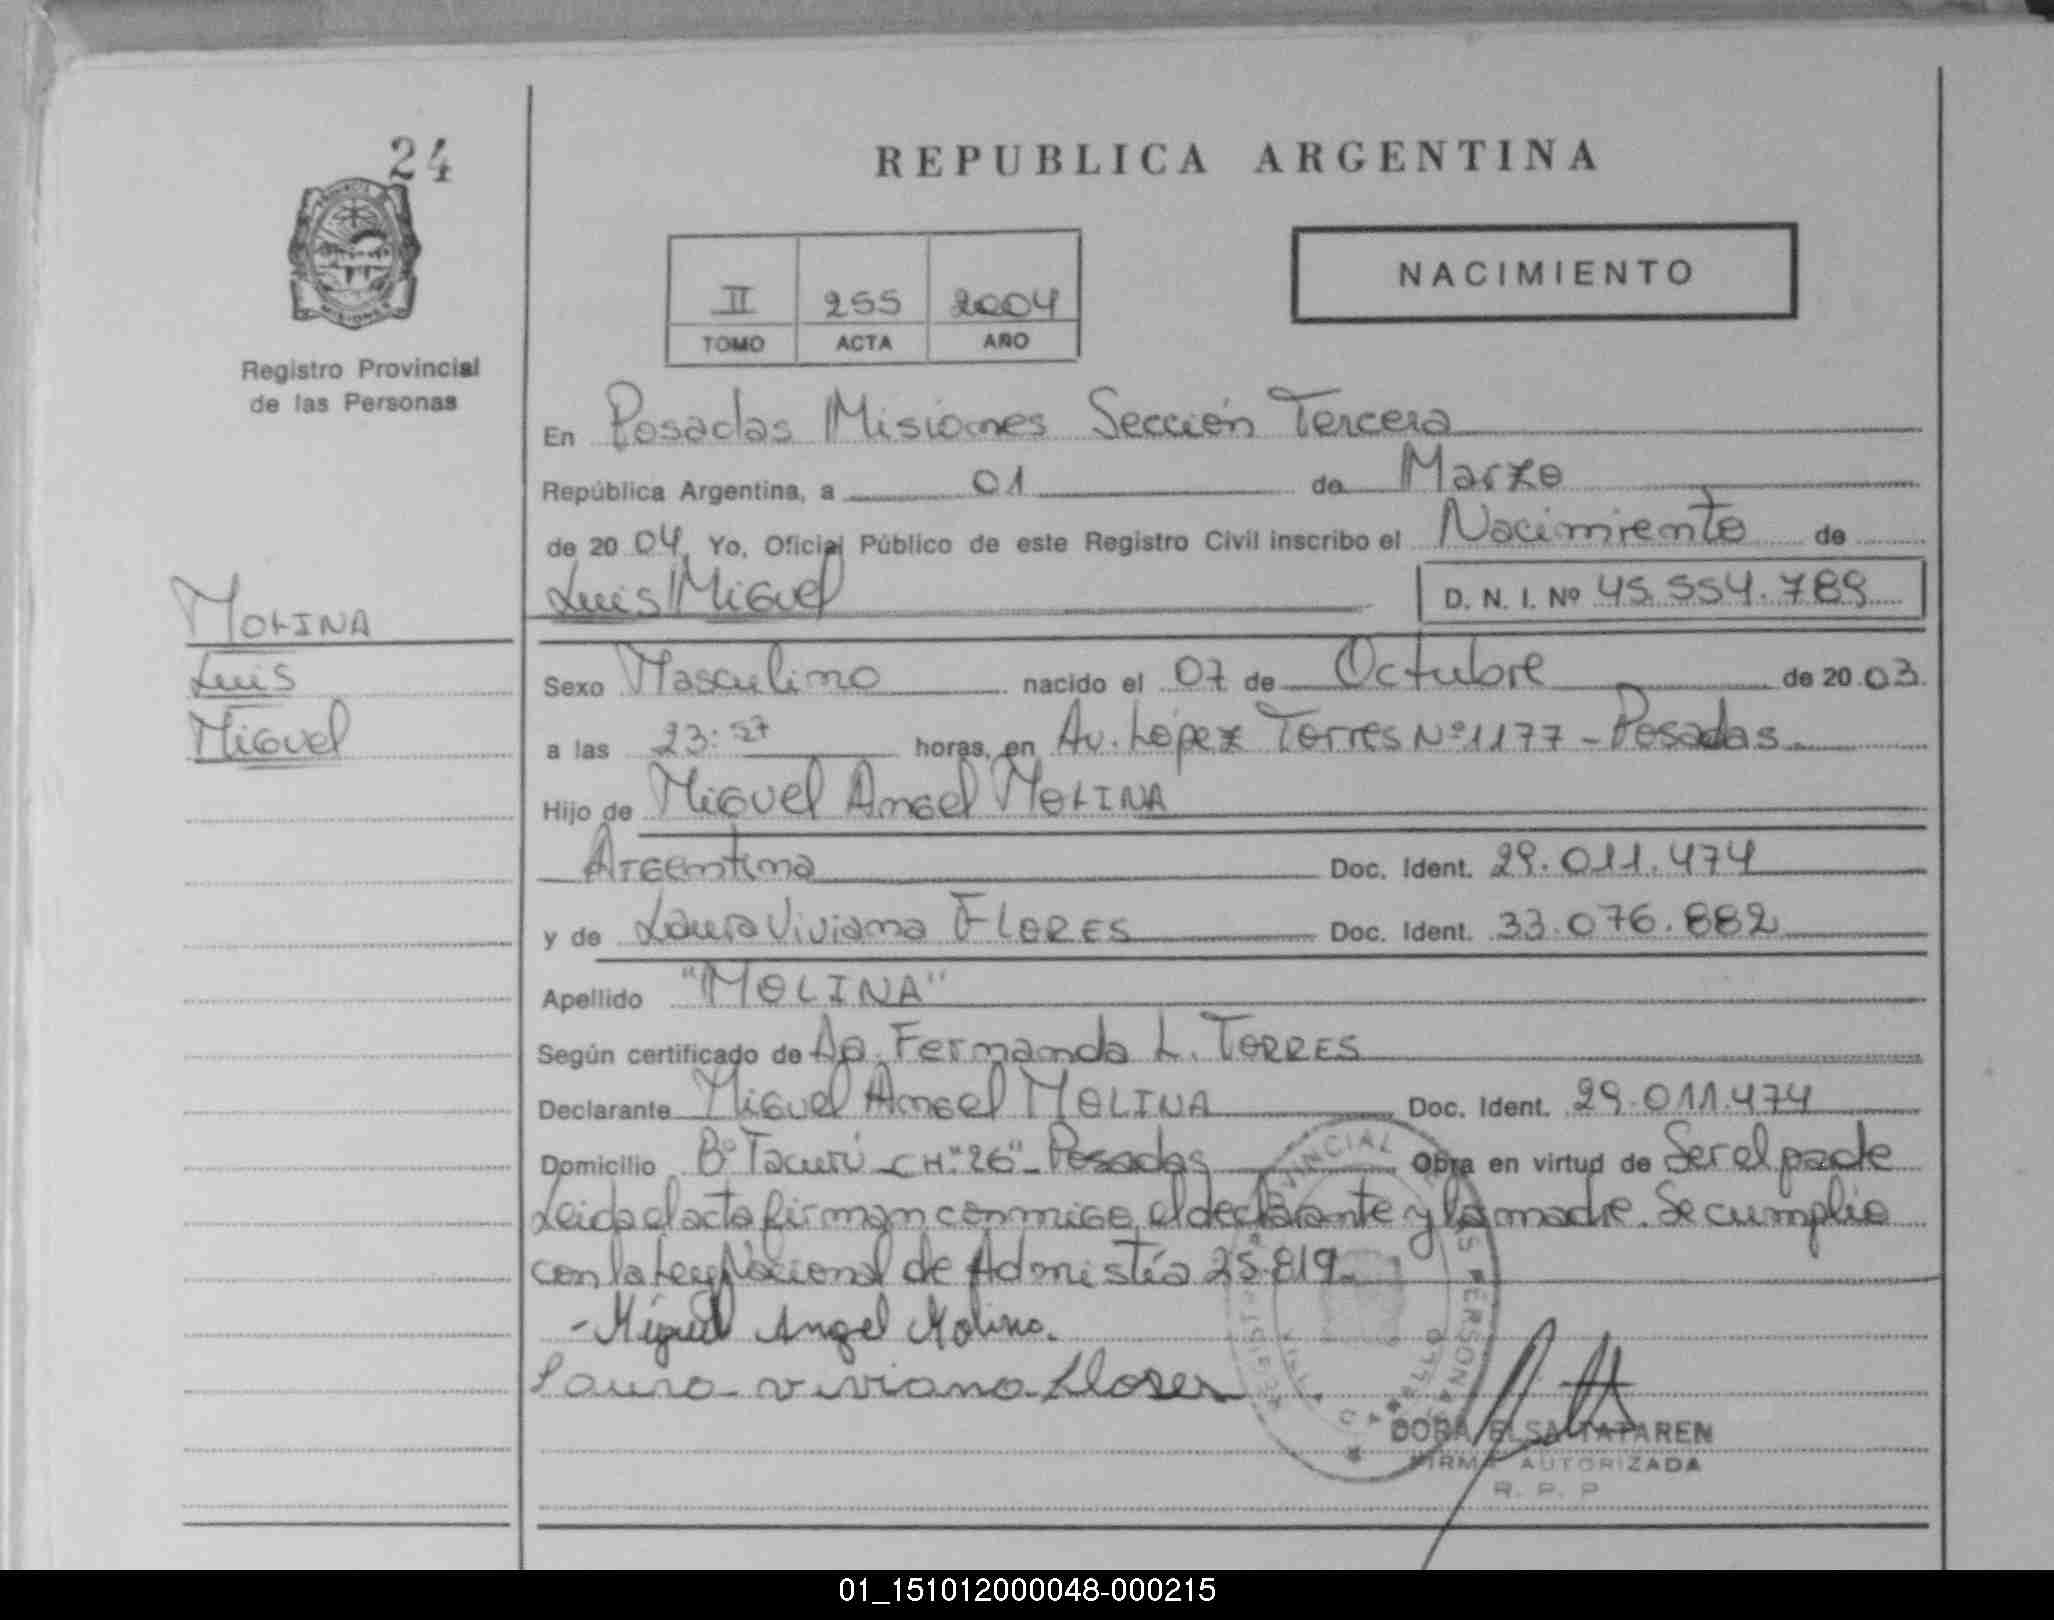 24
REPUBLICA ARGENTINA
NACIMIENTO
II 255 2004
TOMO ACTA AÑO
Registro Provincial
de las Personas
En Posadas Misiones Sección Tercera
República Argentina, a 01 de Marzo
de 20 04, Yo, Oficial Público de este Registro Civil inscribo el Nacimiento de
Luis Miguel D. N. I. Nº 45.554.789
MOLINA
Luis
Miguel
Sexo Masculino nacido el 07 de Octubre de 20.03.
a las 23:57 horas, en Av. López Torres Nº 1177 - Posadas
Hijo de Miguel Angel MOLINA
Argentina Doc. Ident. 29.011.474
y de Laura Viviana FLORES Doc. Ident. 33.076.882
Apellido "MOLINA"
Según certificado de Ap. Fernanda L. TORRES
Declarante Miguel Angel MOLINA Doc. Ident. 29.011.474
Domicilio Bº Tacurú CH "26" - Posadas Obra en virtud de Ser el padre
Leida el acta firman conmigo el declarante y la madre. Se cumplio
con la Ley Nacional de Admistía 25.819.
- Miguel Angel Molina.
Laura viviana
DORA ELSA TATAREN
FIRMA AUTORIZADA
R. P. P
01_151012000048-000215